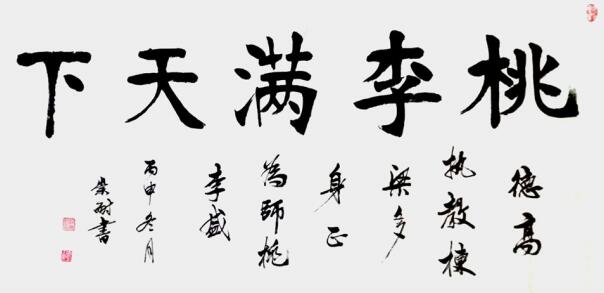 桃李满天下
德高
执教栋
梁多
身正
為師桃
李盛
丙申冬月
書